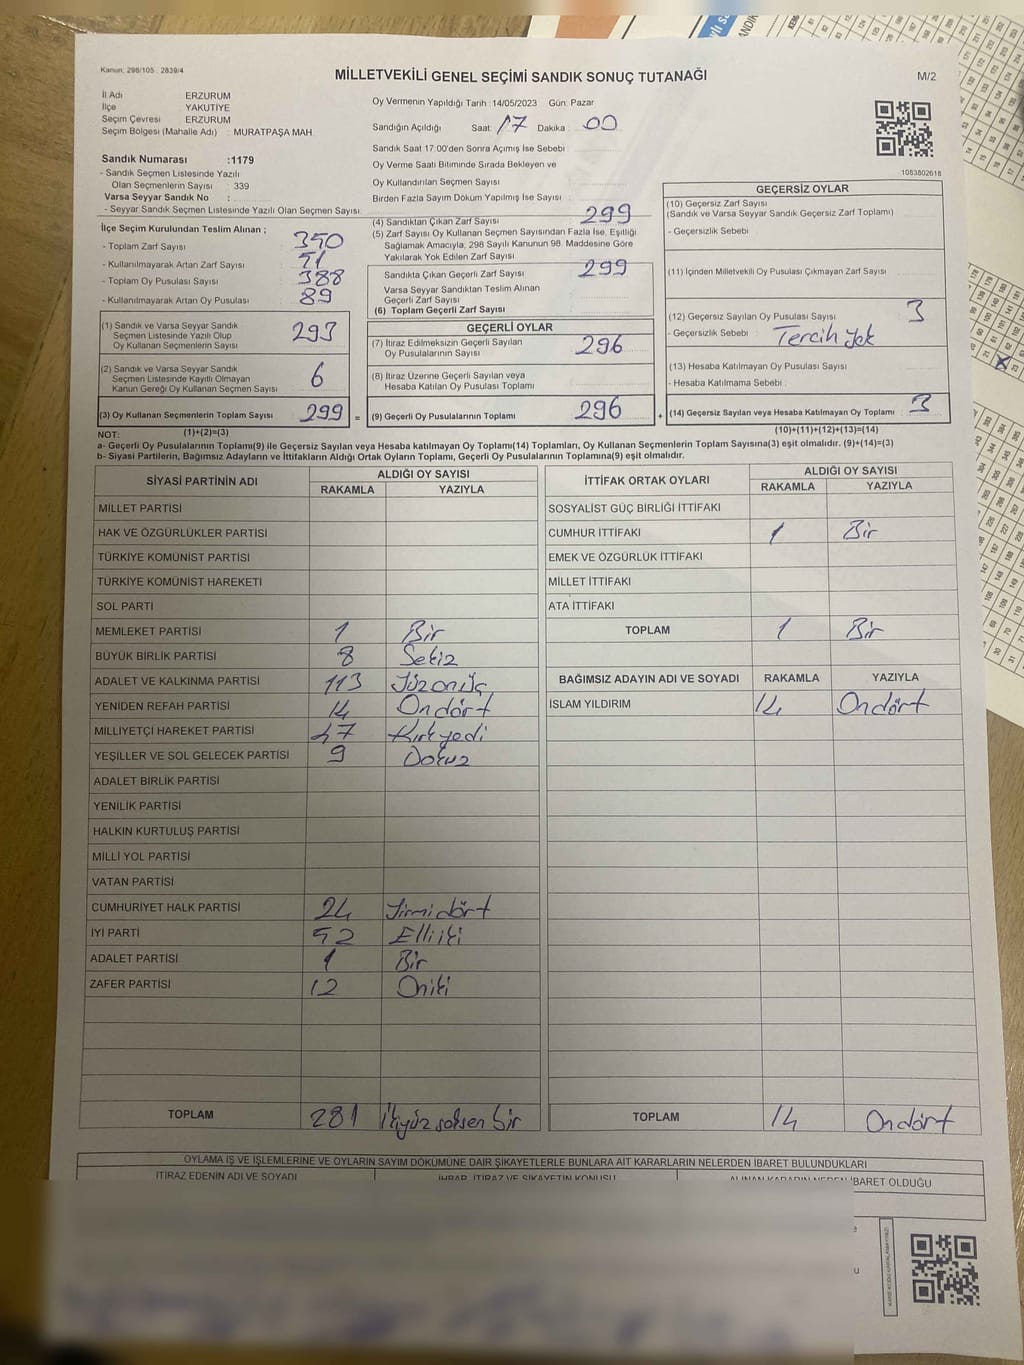 Kanun; 298/105 . 2839/4
MİLLETVEKİLİ GENEL SEÇİMİ SANDIK SONUÇ TUTANAĞI
M/2
İl Adı ERZURUM
İlçe YAKUTİYE
Seçim Çevresi ERZURUM
Seçim Bölgesi (Mahalle Adı) : MURATPAŞA MAH.
Sandık Numarası :1179
- Sandık Seçmen Listesinde Yazılı
Olan Seçmenlerin Sayısı : 339
Varsa Seyyar Sandık No :
- Seyyar Sandık Seçmen Listesinde Yazılı Olan Seçmen Sayısı:
Oy Vermenin Yapıldığı Tarih :14/05/2023 Gün: Pazar
Sandığın Açıldığı Saat: 17 Dakika : 00
Sandık Saat 17:00'den Sonra Açımış İse Sebebi :
Oy Verme Saati Bitiminde Sırada Bekleyen ve
Oy Kullandırılan Seçmen Sayısı
Birden Fazla Sayım Döküm Yapılmış İse Sayısı
1083802618
İlçe Seçim Kurulundan Teslim Alınan ;
- Toplam Zarf Sayısı 350
- Kullanılmayarak Artan Zarf Sayısı 51
- Toplam Oy Pusulası Sayısı 388
- Kullanılmayarak Artan Oy Pusulası 89
(1) Sandık ve Varsa Seyyar Sandık
Seçmen Listesinde Yazılı Olup
Oy Kullanan Seçmenlerin Sayısı 293
(2) Sandık ve Varsa Seyyar Sandık
Seçmen Listesinde Kayıtlı Olmayan
Kanun Gereği Oy Kullanan Seçmen Sayısı 6
(3) Oy Kullanan Seçmenlerin Toplam Sayısı 299 =
(1)+(2)=(3)
(4) Sandıktan Çıkan Zarf Sayısı 299
(5) Zarf Sayısı Oy Kullanan Seçmen Sayısından Fazla İse, Eşitliği
Sağlamak Amacıyla, 298 Sayılı Kanunun 98. Maddesine Göre
Yakılarak Yok Edilen Zarf Sayısı
Sandıkta Çıkan Geçerli Zarf Sayısı 299
Varsa Seyyar Sandıktan Teslim Alınan
Geçerli Zarf Sayısı
(6) Toplam Geçerli Zarf Sayısı
GEÇERLİ OYLAR
(7) İtiraz Edilmeksizin Geçerli Sayılan
Oy Pusulalarının Sayısı 296
(8) İtiraz Üzerine Geçerli Sayılan veya
Hesaba Katılan Oy Pusulası Toplamı
(9) Geçerli Oy Pusulalarının Toplamı 296 +
GEÇERSİZ OYLAR
(10) Geçersiz Zarf Sayısı
(Sandık ve Varsa Seyyar Sandık Geçersiz Zarf Toplamı)
- Geçersizlik Sebebi :
(11) İçinden Milletvekili Oy Pusulası Çıkmayan Zarf Sayısı
(12) Geçersiz Sayılan Oy Pusulası Sayısı : 3
- Geçersizlik Sebebi : Tercih Yok
(13) Hesaba Katılmayan Oy Pusulası Sayısı :
- Hesaba Katılmama Sebebi :
(14) Geçersiz Sayılan veya Hesaba Katılmayan Oy Toplamı : 3
(10)+(11)+(12)+(13)=(14)
NOT:
a- Geçerli Oy Pusulalarının Toplamı(9) ile Geçersiz Sayılan veya Hesaba katılmayan Oy Toplamı(14) Toplamları, Oy Kullanan Seçmenlerin Toplam Sayısına(3) eşit olmalıdır. (9)+(14)=(3)
b- Siyasi Partilerin, Bağımsız Adayların ve İttifakların Aldığı Ortak Oyların Toplamı, Geçerli Oy Pusulalarının Toplamına(9) eşit olmalıdır.
SİYASİ PARTİNİN ADI ALDIĞI OY SAYISI
RAKAMLA YAZIYLA
MİLLET PARTİSİ
HAK VE ÖZGÜRLÜKLER PARTİSİ
TÜRKİYE KOMÜNİST PARTİSİ
TÜRKİYE KOMÜNİST HAREKETİ
SOL PARTİ
MEMLEKET PARTİSİ 1 Bir
BÜYÜK BİRLİK PARTİSİ 8 Sekiz
ADALET VE KALKINMA PARTİSİ 113 Yüzonüç
YENİDEN REFAH PARTİSİ 14 Ondört
MİLLİYETÇİ HAREKET PARTİSİ 47 Kırkyedi
YEŞİLLER VE SOL GELECEK PARTİSİ 9 Dokuz
ADALET BİRLİK PARTİSİ
YENİLİK PARTİSİ
HALKIN KURTULUŞ PARTİSİ
MİLLİ YOL PARTİSİ
VATAN PARTİSİ
CUMHURİYET HALK PARTİSİ 24 Yirmidört
İYİ PARTİ 52 Elliiki
ADALET PARTİSİ 1 Bir
ZAFER PARTİSİ 12 Oniki
TOPLAM 281 İkiyüz seksen bir
İTTİFAK ORTAK OYLARI ALDIĞI OY SAYISI
RAKAMLA YAZIYLA
SOSYALİST GÜÇ BİRLİĞİ İTTİFAKI
CUMHUR İTTİFAKI 1 Bir
EMEK VE ÖZGÜRLÜK İTTİFAKI
MİLLET İTTİFAKI
ATA İTTİFAKI
TOPLAM 1 Bir
BAĞIMSIZ ADAYIN ADI VE SOYADI RAKAMLA YAZIYLA
İSLAM YILDIRIM 14 Ondört
TOPLAM 14 Ondört
OYLAMA İŞ VE İŞLEMLERİNE VE OYLARIN SAYIM DÖKÜMÜNE DAİR ŞİKAYETLERLE BUNLARA AİT KARARLARIN NELERDEN İBARET BULUNDUKLARI
İTİRAZ EDENİN ADI VE SOYADI İHBAR, İTİRAZ VE ŞİKAYETİN KONUSU ALINAN KARARIN NEDEN İBARET OLDUĞU